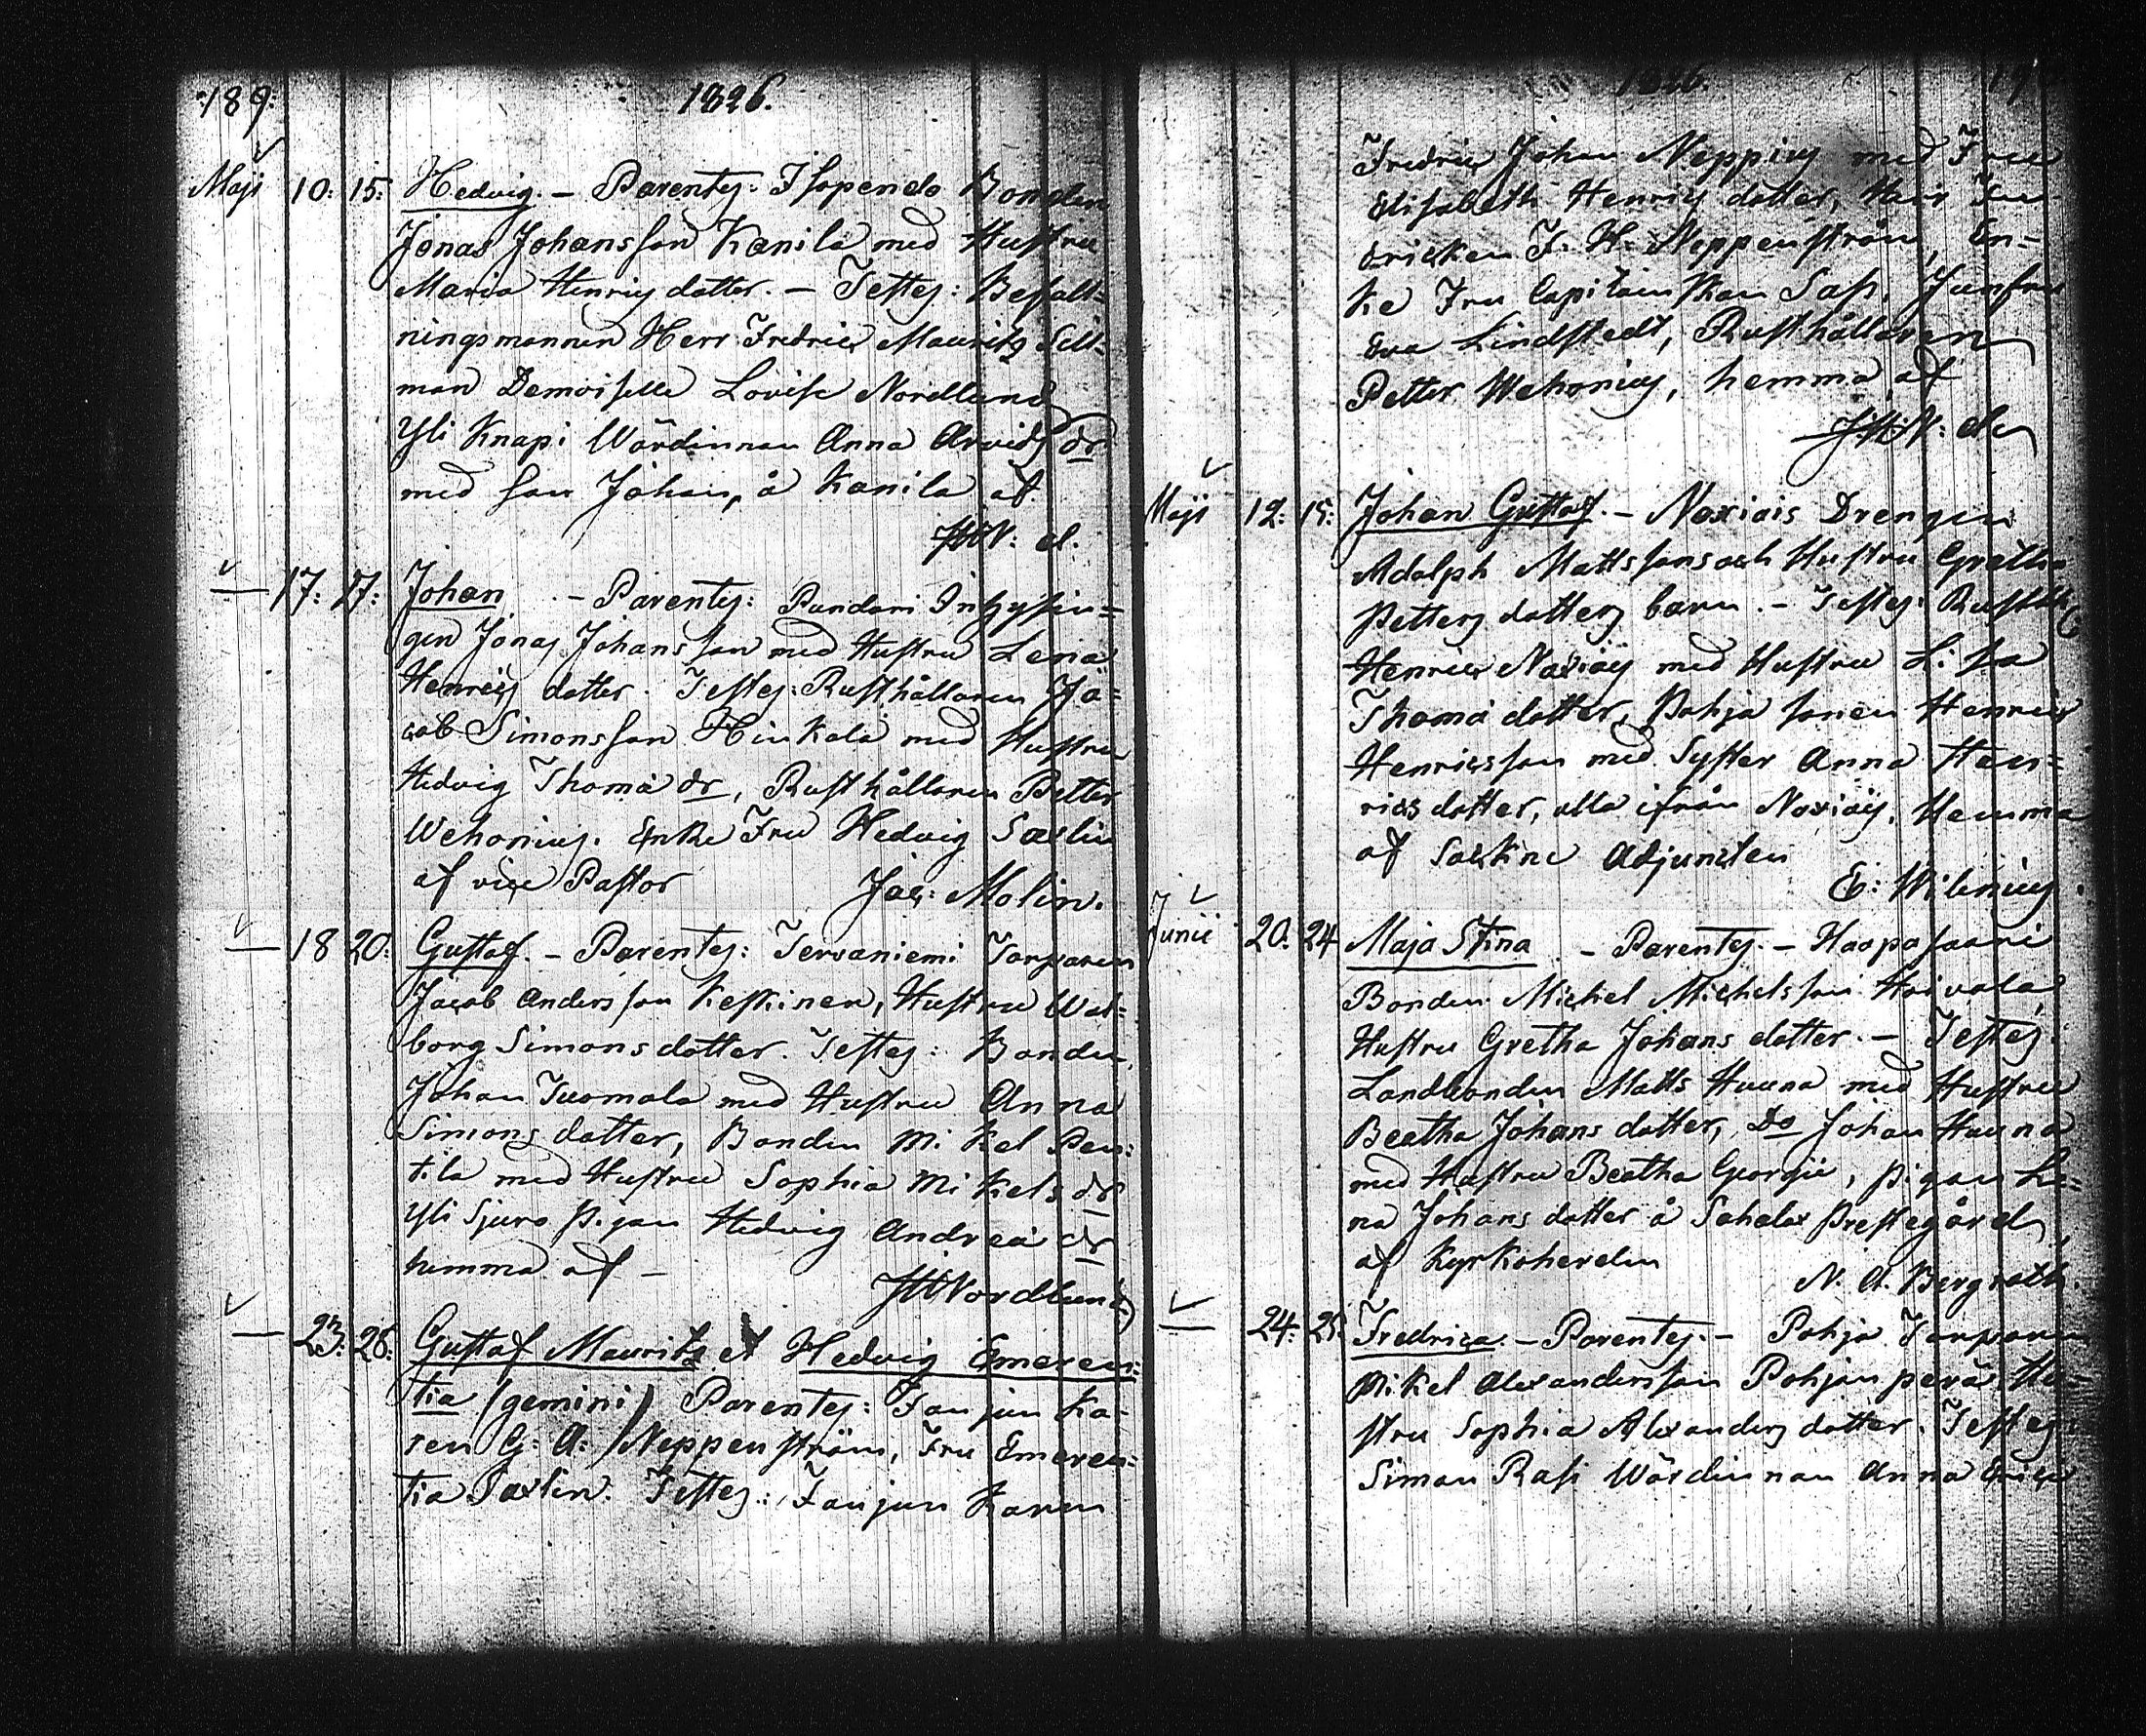 189.
1826.
Maji 10: 15: Hedvig. – Parentes: Isopendo Bonden
Jonas Johansson Kanila med Hustru
Maria Henrics dotter. – Testes: Befall-
ningsmannen Herr Fredric Mauritz Sill-
man Demoiselle Lovise Nordlund
Yli Knapi Wärdinnan Anna Arvids dr
med son Johan, å Kanila af
JHN: d.
— 17: 17: Johan – Parentes: Pandari Inhysin-
gen Jonas Johansson med Hustru Lena
Henrics dotter. Testes: Rusthållaren Ja-
cob Simonsson Hinkala med Hustru
Hedvig Thomæ dr, Rusthållaren Petter
Wehonius. Enke Fru Hedvig Saxlin
af vice Pastor Jac: Molin.
— 18 20: Gustaf. – Parentes: Tervaniemi Torparen
Jacob Andersson Keskinen, Hustru Wal-
borg Simonsdotter. Testes: Bonden
Johan Tuomola med Hustru Anna
Simons dotter, Bonden Mikel Pen-
tila med Hustru Sophia Mikels dr
Yli Sjuro Pigan Hedvig Andreæ dr
hemma af – JHNordlund
— 23: 28: Gustaf Mauritz et Hedvig Emeren-
tia (gemini) Parentes: Fanjun ka-
ren G: A: Neppenström, Fru Emeren-
tia Saxlin. Testes: Fanjun karen
1826.
Fredric Johan Neppius med Frue
Elisabeth Henrics dotter,
F: H: Neppenström, En-
ke Fru Capitainskan Sass, Jumfru
Eva Lindstedt, Rusthållaren
Petter Wehonius, hemma af
JHN: d.
Maji 12: 15: Johan Gustaf. – Noxiais Drengen
Adolph Mattssons och Hustru Gretha
Petters dotters barn. – Testes: Rusth:
Henric Noxiäy med Hustru Lisa
Thomæ dotter, Pohja sonen Henric
Henricsson med Syster Anna Hen-
rics dotter, alla ifrån Noxiäy. Hemma
af Sockne Adjuncten
E: Wilenius.
Junii 20. 24 Maja Stina – Parentes. – Haapasaari
Bonden Michel Michelsson Hoivala,
Hustru Gretha Johans dotter. – Testes.
Landbonden Matts Huuna med Hustru
Beatha Johans dotter, Do Johan Huuna
med Hustru Beatha Georgii, pigan Le-
na Johans dotter å Sahalax Prestegård,
af Kyrkoherden N. A. Bergroth.
— 24: 25: Fredrica. – Parentes. – Pohja Torparen
Mikel Alexandersson Pohjanperä, Hu-
stru Sophia Alexanders dotter. Testes:
Simon Rasi Wärdinnan Anna Erics